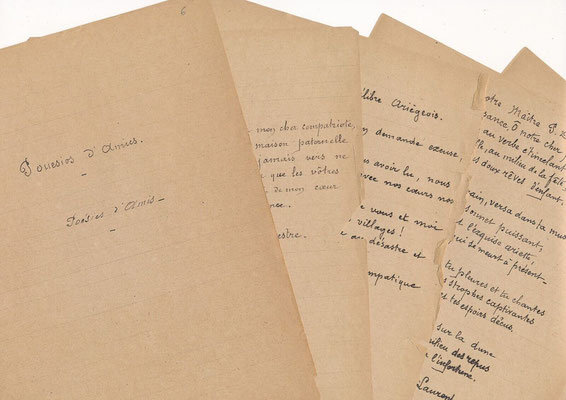 6
Pouesios d'Amics.
Poésies d'Amis
mon cher compatriote,
maison paternelle
jamais vers ne
que les vôtres
de mon cœur
estre.
libre Ariégeois.
demande excuse
avoir lu, nous
nos cœurs nos
vous et moi
villages!
désastre et
mpathique
otre Maître P.
sance, Ô notre cher
au verbe étincelant
au milieu de la fête,
doux rêves d'enfant.
ain, versa dans ta mus
sonnet puissant,
l'exquise ariette
qui se meurt à présent
tu pleures et tu chantes
strophes captivantes
tes espoirs déçus.
sur la dune
milieu des repus
l'infortune.
Laurent